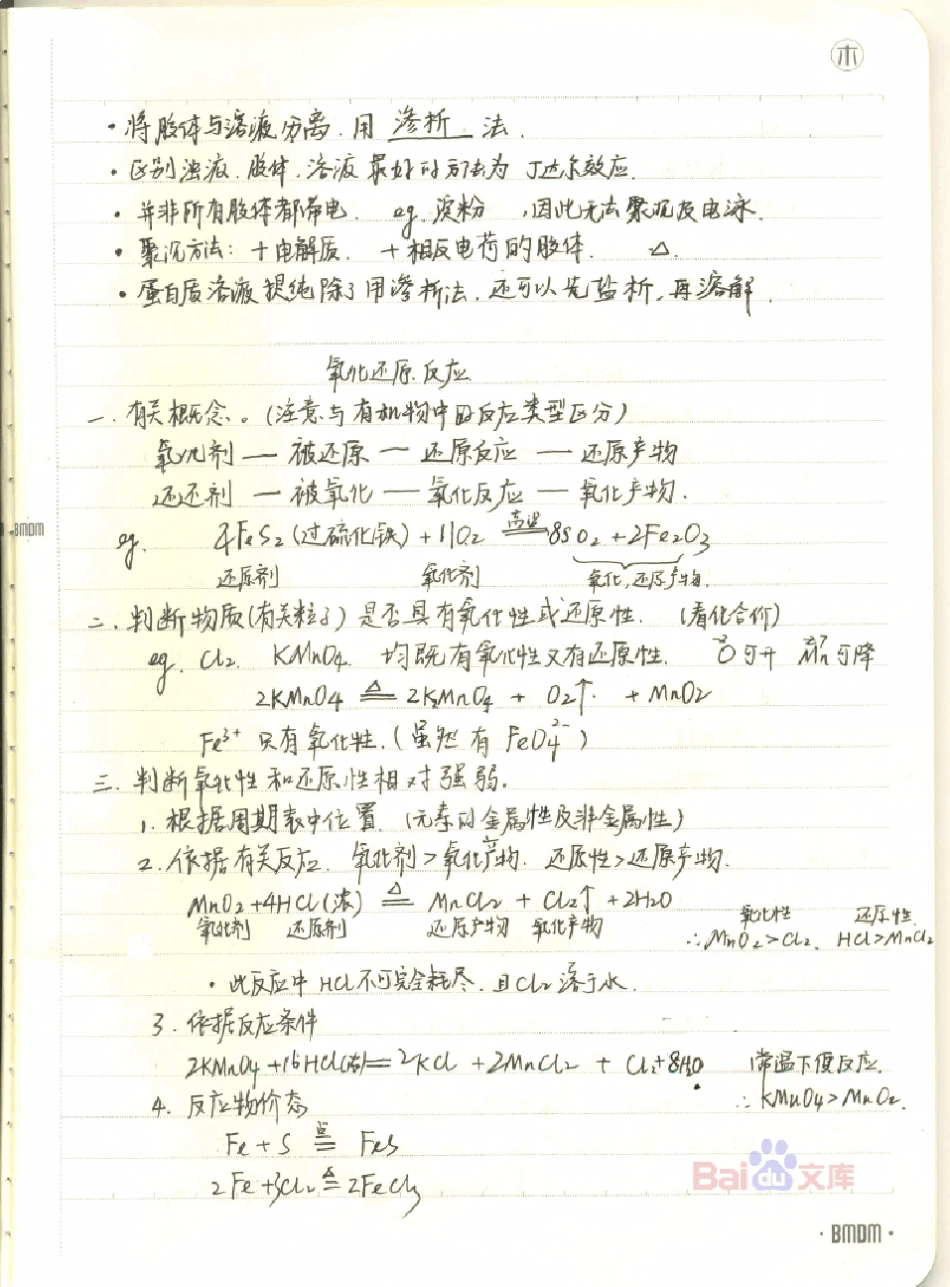 木
·将胶体与溶液分离.用 渗析 法.
·区别浊液.胶体.溶液最好的方法为丁达尔效应.
·并非所有胶体都带电. eg.淀粉 ,因此无法聚沉及电泳.
·聚沉方法: +电解质. +相反电荷的胶体. △.
·蛋白质溶液提纯除了用渗析法,还可以先盐析,再溶解.
氧化还原反应
一.有关概念。(注意与有机物中的反应类型区分)
氧化剂 — 被还原 — 还原反应 — 还原产物
还还剂 — 被氧化 — 氧化反应 — 氧化产物.
BMDM
eg. 4FeS₂(过硫化铁)+11O₂ 高温 8SO₂+2Fe₂O₃
还原剂 氧化剂 氧化,还原产物.
二.判断物质(有关粒子)是否具有氧化性或还原性. (看化合价)
eg. Cl₂. KMnO₄. 均既有氧化性又有还原性. O⁻²可升 Mn⁺⁷可降
2KMnO₄ ≜ 2K₂MnO₄ + O₂↑ + MnO₂
Fe³⁺ 只有氧化性.(虽然有FeO₄²⁻)
三.判断氧化性和还原性相对强弱.
1.根据周期表中位置.(元素的金属性及非金属性)
2.依据有关反应. 氧化剂>氧化产物. 还原性>还原产物.
MnO₂+4HCl(浓) ≜ MnCl₂ + Cl₂↑ +2H₂O
氧化剂 还原剂 还原产物 氧化产物 氧化性 还原性
∴MnO₂>Cl₂. HCl>MnCl₂
·此反应中HCl不可完全耗尽.且Cl₂溶于水.
3.依据反应条件
2KMnO₄+16HCl(浓)=2KCl +2MnCl₂ + Cl₂+8H₂O 常温下便反应.
4.反应物价态 ∴KMnO₄>MnO₂.
Fe+S ≜ FeS
2Fe+3Cl₂ ≜ 2FeCl₃
Baidu文库
·BMDM·